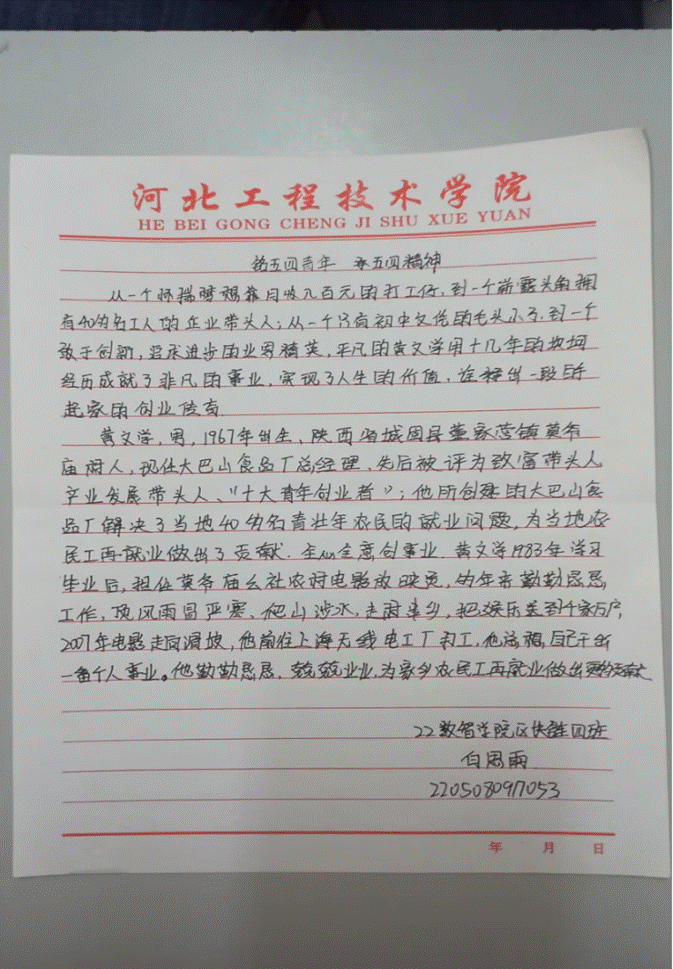 河北工程技术学院
HE BEI GONG CHENG JI SHU XUE YUAN
五四青年 五四精神
从一个怀揣梦想靠月收几百元的打工仔,到一个崭露头角拥
有40多名工人的企业带头人;从一个只有初中文化的毛头小子,到一个
敢于创新,追求进步的业界精英,平凡的黄文学用十几年的坎坷
经历成就了非凡的事业,实现了人生的价值,诠释出一段白手
起家的创业传奇
黄文学,男,1967年出生、陕西省城固县董家营镇莫爷
庙村人,现任大巴山食品厂总经理、先后被评为致富带头人
产业发展带头人、“十大青年创业者”;他所创建的大巴山食
品厂解决了当地40多名青壮年农民的就业问题,为当地农
民工再就业做出了贡献.全心全意创事业.黄文学1983年学习
毕业后,担任莫爷庙公社农村电影放映员,多年来勤勤恳恳
工作,顶风雨冒严寒、爬山涉水,走村串乡,把娱乐送到千家万户,
2007年电影走向滑坡,他前往上海无线电工厂打工,他总想,自己干出
一番个人事业。他勤勤恳恳,兢兢业业,为家乡农民工再就业做出贡献
22数智学院区块链四班
白周雨
220508097053
年 月 日